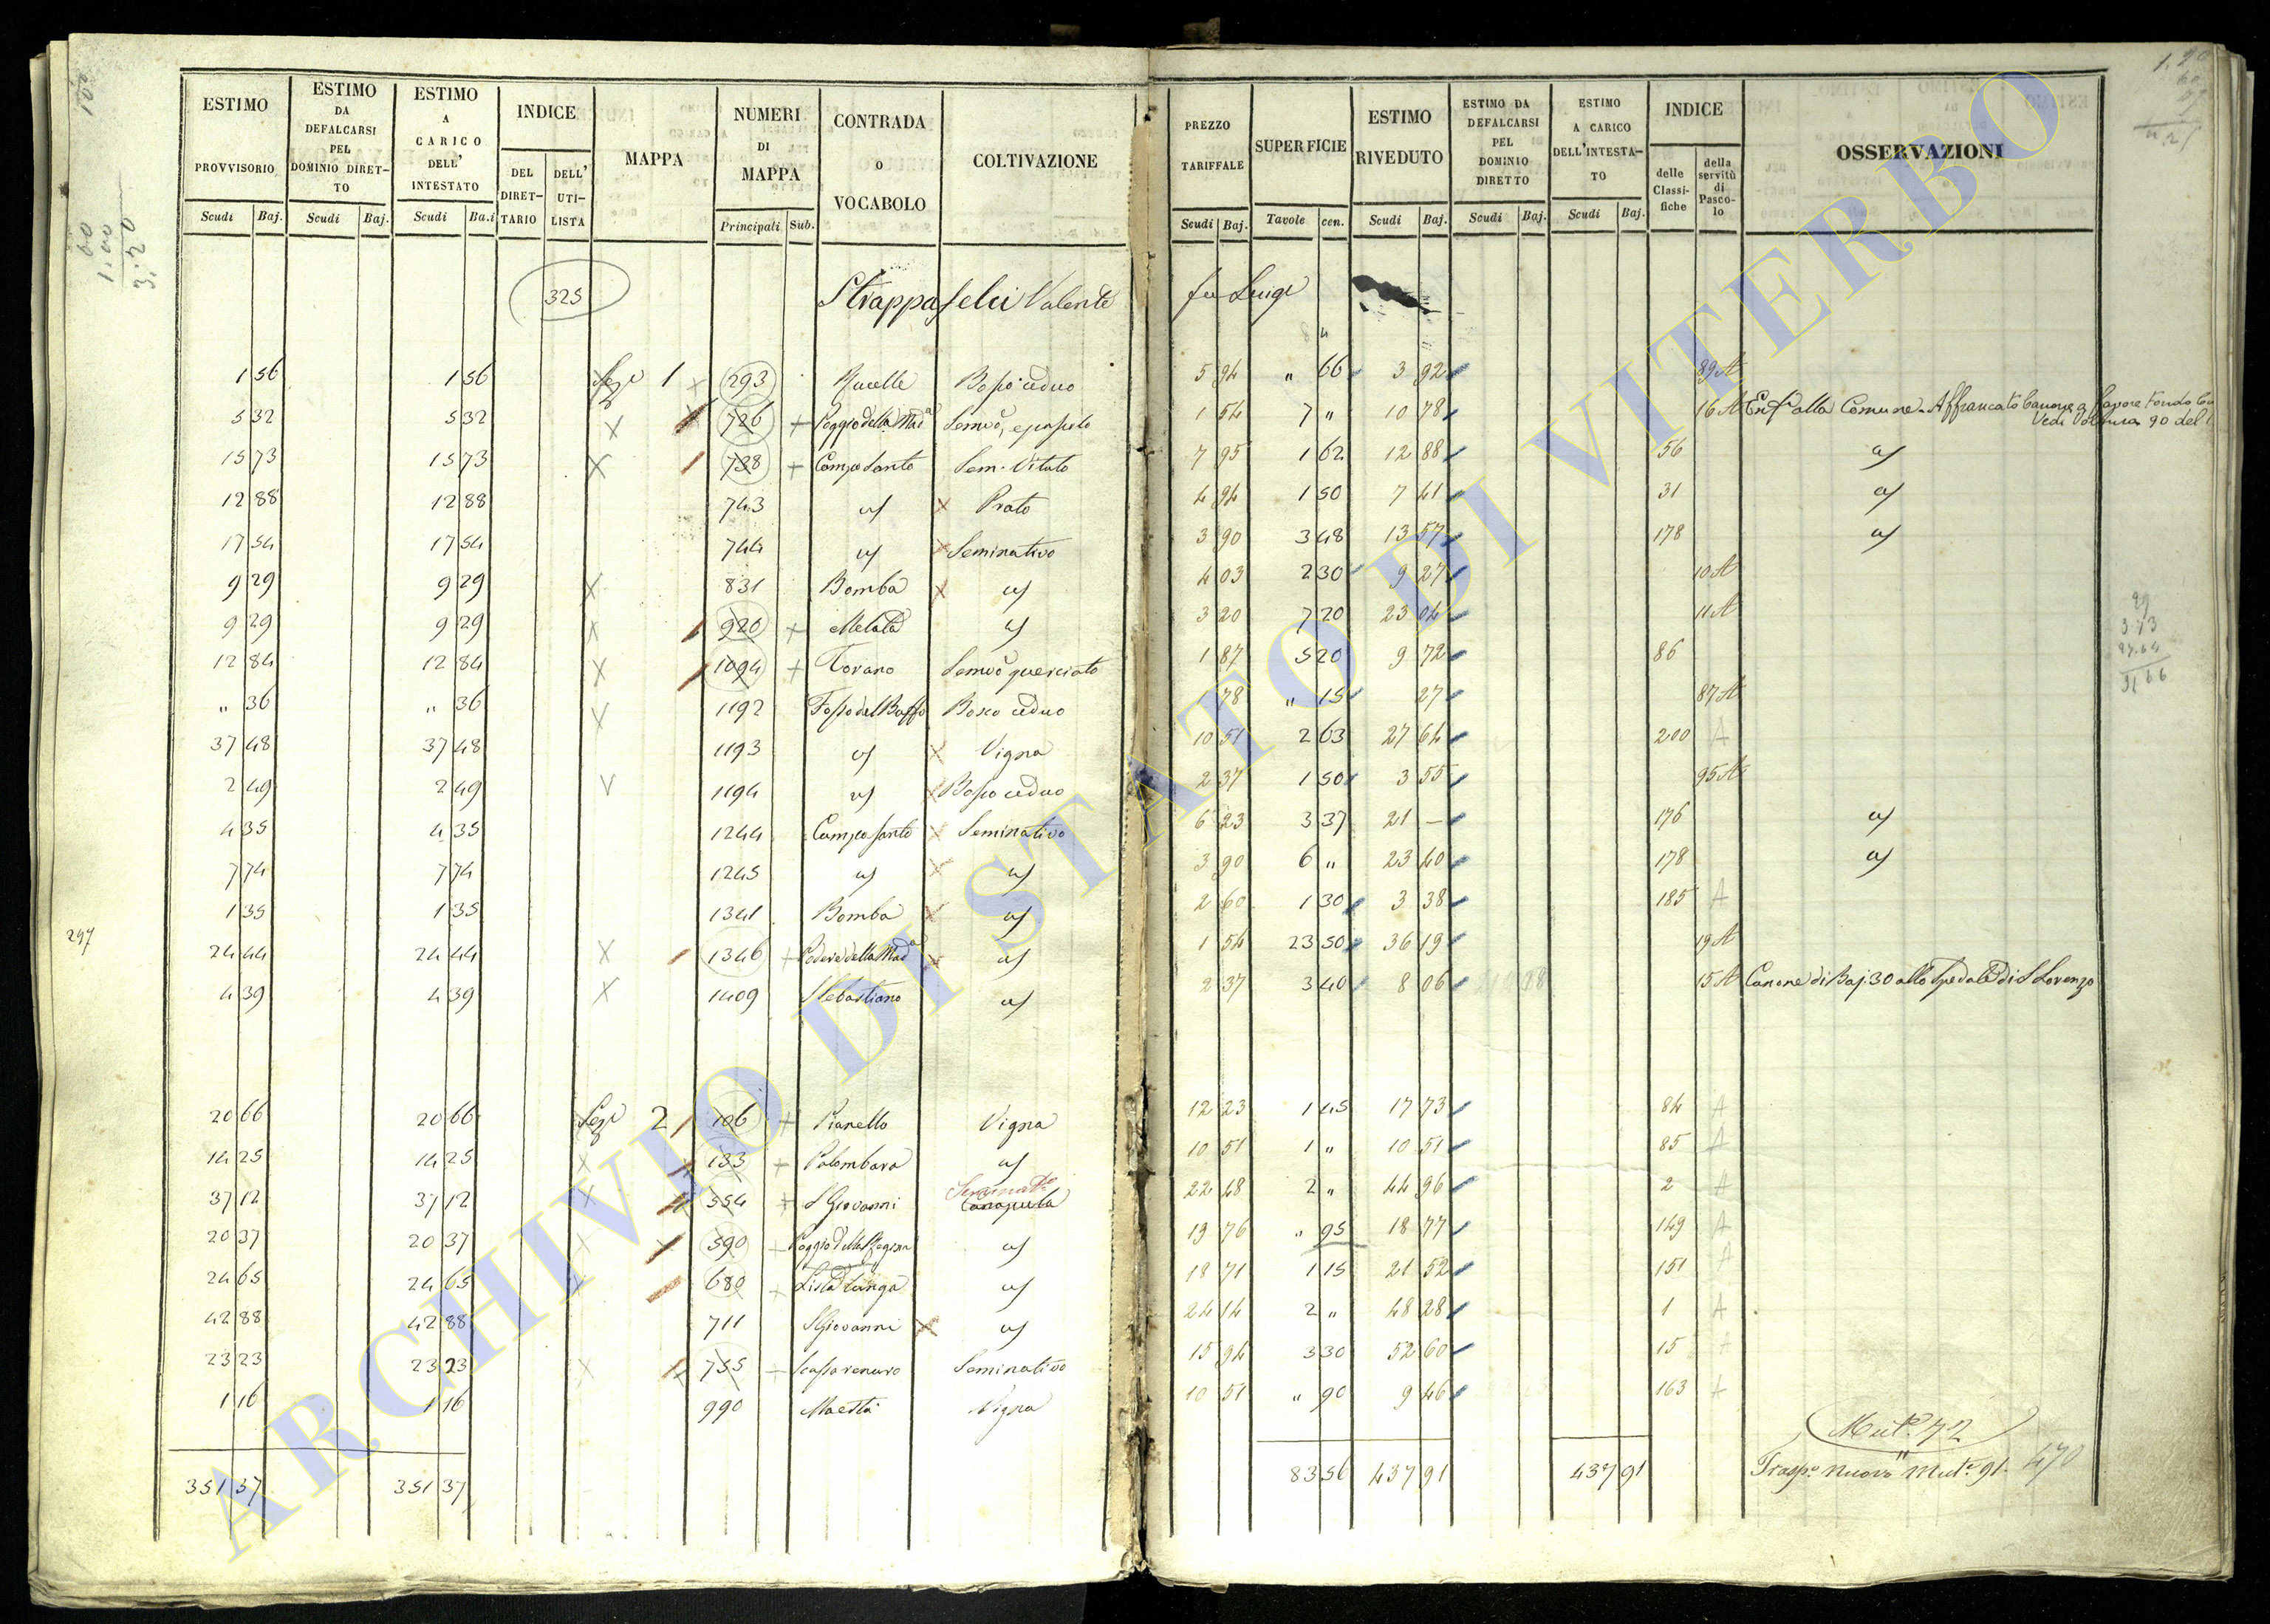 ESTIMO PROVVISORIO
ESTIMO DA DEFALCARSI PEL DOMINIO DIRET-TO
ESTIMO A CARICO DELL' INTESTATO
INDICE
DEL DIRET-TARIO
DELL' UTI-LISTA
MAPPA
NUMERI DI MAPPA
CONTRADA o VOCABOLO
COLTIVAZIONE
PREZZO TARIFFALE
SUPERFICIE
ESTIMO RIVEDUTO
ESTIMO DA DEFALCARSI PEL DOMINIO DIRETTO
ESTIMO A CARICO DELL'INTESTA-TO
INDICE
delle Classi-fiche
della servitù di Pasco-lo
OSSERVAZIONI
Scudi Baj. Scudi Baj. Scudi Ba.i Principali Sub. Scudi Baj. Tavole cen. Scudi Baj. Scudi Baj. Scudi Baj.
325 Strappafelci Valente fu Luigi
1 56 1 56 Sez.e 1 293 Rucelle Bosco ceduo 5 94 " 66 3 92 89 A
5 32 5 32 726 Poggio della Mad.a Semvo, e pascolo 1 54 7 " 10 78 16 A Enf.a alla Comune. Affrancato Canone a favore Fondo
Vedi Voltura 90 del
15 73 15 73 738 Campo Santo Sem. Vitato 7 95 1 62 12 88 56 a/
12 88 12 88 743 a/ Prato 4 94 1 50 7 41 31 a/
17 54 17 54 744 a/ Seminativo 3 90 3 48 13 57 178 a/
9 29 9 29 831 Bomba a/ 4 03 2 30 9 27 10 A
9 29 9 29 920 Melata a/ 3 20 7 20 23 04 11 A
12 84 12 84 1094 Torano Semvo querciato 1 87 5 20 9 72 86
" 36 " 36 1192 Fosso del Buffo Bosco ceduo 78 " 15 27 87 A
37 48 37 48 1193 a/ Vigna 10 51 2 63 27 64 200 A
2 49 2 49 1194 a/ Bosco ceduo 2 37 1 50 3 55 95 A
4 35 4 35 1244 Campo Santo Seminativo 6 23 3 37 21 — 176 a/
7 74 7 74 1245 a/ a/ 3 90 6 " 23 40 178 a/
1 35 1 35 1341 Bomba a/ 2 60 1 30 3 38 185 A
297
24 44 24 44 1346 Podere della Mad.a a/ 1 54 23 50 36 19 19 A
4 39 4 39 1409 S Sebastiano a/ 2 37 3 40 8 06 15 A Canone di Baj 30 allo Spedale di S Lorenzo
20 66 20 66 Sez.e 2 106 Pianello Vigna 12 23 1 45 17 73 84 A
14 25 14 25 133 Palombara a/ 10 51 1 " 10 51 85 A
37 12 37 12 554 S Giovanni Seminat.o Canapula 22 48 2 " 44 96 2 A
20 37 20 37 590 Poggio della Regina a/ 19 76 " 95 18 77 149 A
24 65 24 65 680 Lista lunga a/ 18 71 1 15 21 52 151 A
42 88 42 88 711 S Giovanni a/ 24 14 2 " 48 28 1 A
23 23 23 23 735 Seminativo 15 94 3 30 52 60 15 A
1 16 1 16 990 Maestà Vigna 10 51 " 90 9 46 163 A
Mut.e 72
351 37 351 37 83 56 437 91 437 91 Trasp.o nuovo Mut.e 91. 470
ARCHIVIO DI STATO DI VITERBO